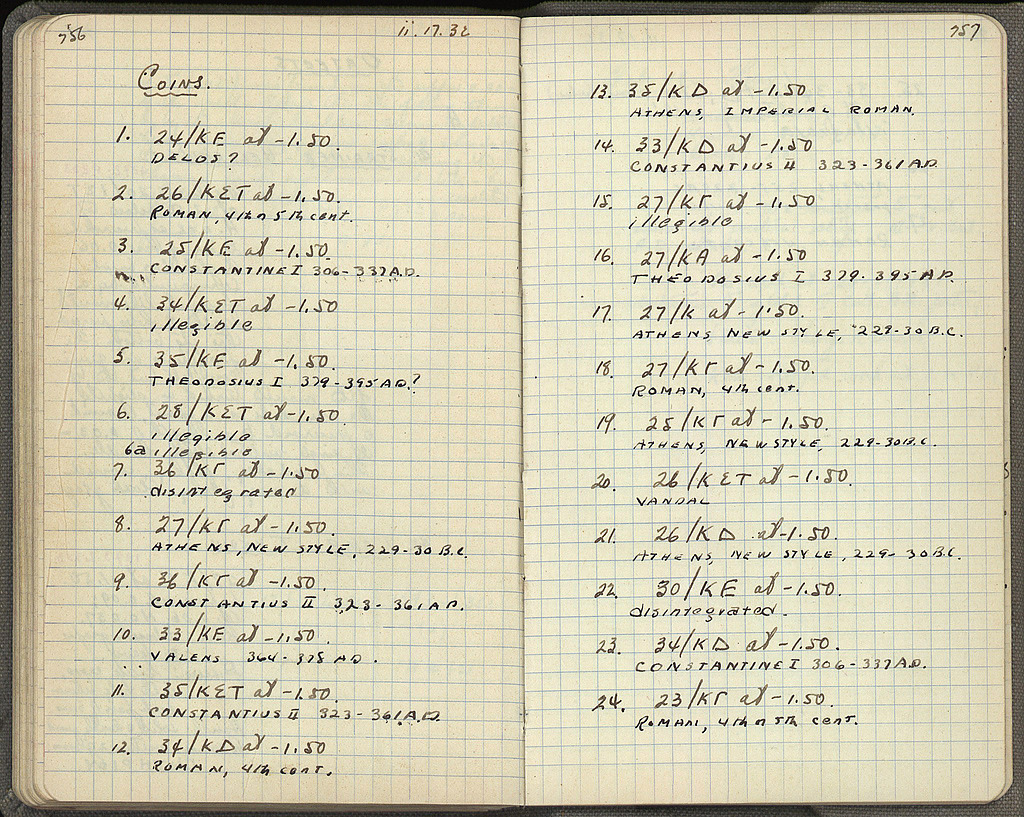 756
ii.17.32
COINS.
1. 24/ΚΕ at -1.50.
DELOS?
2. 26/ΚΣΤ at -1.50.
ROMAN, 4th or 5th cent.
3. 25/ΚΕ at -1.50.
CONSTANTINE I 306-337 A.D.
4. 34/ΚΣΤ at -1.50
illegible
5. 35/ΚΕ at -1.50.
THEODOSIUS I 379-395 A.D.?
6. 28/ΚΣΤ at -1.50
illegible
6a illegible
7. 36/ΚΓ at -1.50
disintegrated
8. 27/ΚΓ at -1.50.
ATHENS, NEW STYLE, 229-30 B.C.
9. 36/ΚΓ at -1.50.
CONSTANTIUS II 323-361 A.D.
10. 33/ΚΕ at -1.50.
VALENS 364-378 A.D.
11. 35/ΚΣΤ at -1.50.
CONSTANTIUS II 323-361 A.D.
12. 34/ΚΔ at -1.50
ROMAN, 4th cent.
757
13. 35/ΚΔ at -1.50
ATHENS, IMPERIAL ROMAN.
14. 33/ΚΔ at -1.50
CONSTANTIUS II 323-361 A.D.
15. 27/ΚΓ at -1.50
illegible
16. 27/ΚΑ at -1.50
THEODOSIUS I 379-395 A.D.
17. 27/Κ at -1.50.
ATHENS NEW STYLE, 229-30 B.C.
18. 27/ΚΓ at -1.50.
ROMAN, 4th cent.
19. 25/ΚΓ at -1.50.
ATHENS, NEW STYLE, 229-30 B.C.
20. 26/ΚΣΤ at -1.50.
VANDAL
21. 26/ΚΔ at -1.50.
ATHENS, NEW STYLE, 229-30 B.C.
22. 30/ΚΕ at -1.50.
disintegrated.
23. 34/ΚΔ at -1.50.
CONSTANTINE I 306-337 A.D.
24. 23/ΚΓ at -1.50.
ROMAN, 4th or 5th cent.